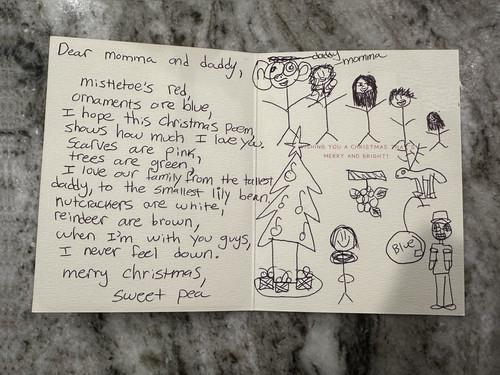 Dear momma and daddy,
mistletoe's red,
ornaments are blue,
I hope this Christmas poem,
shows how much I love you.
Scarves are pink,
trees are green,
I love our family from the tallest
daddy, to the smallest lily bean,
nutcrackers are white,
reindeer are brown,
when I'm with you guys,
I never feel down.
merry christmas,
sweet pea
daddy momma
WISHING YOU A CHRISTMAS THAT'S
MERRY AND BRIGHT!
Blue